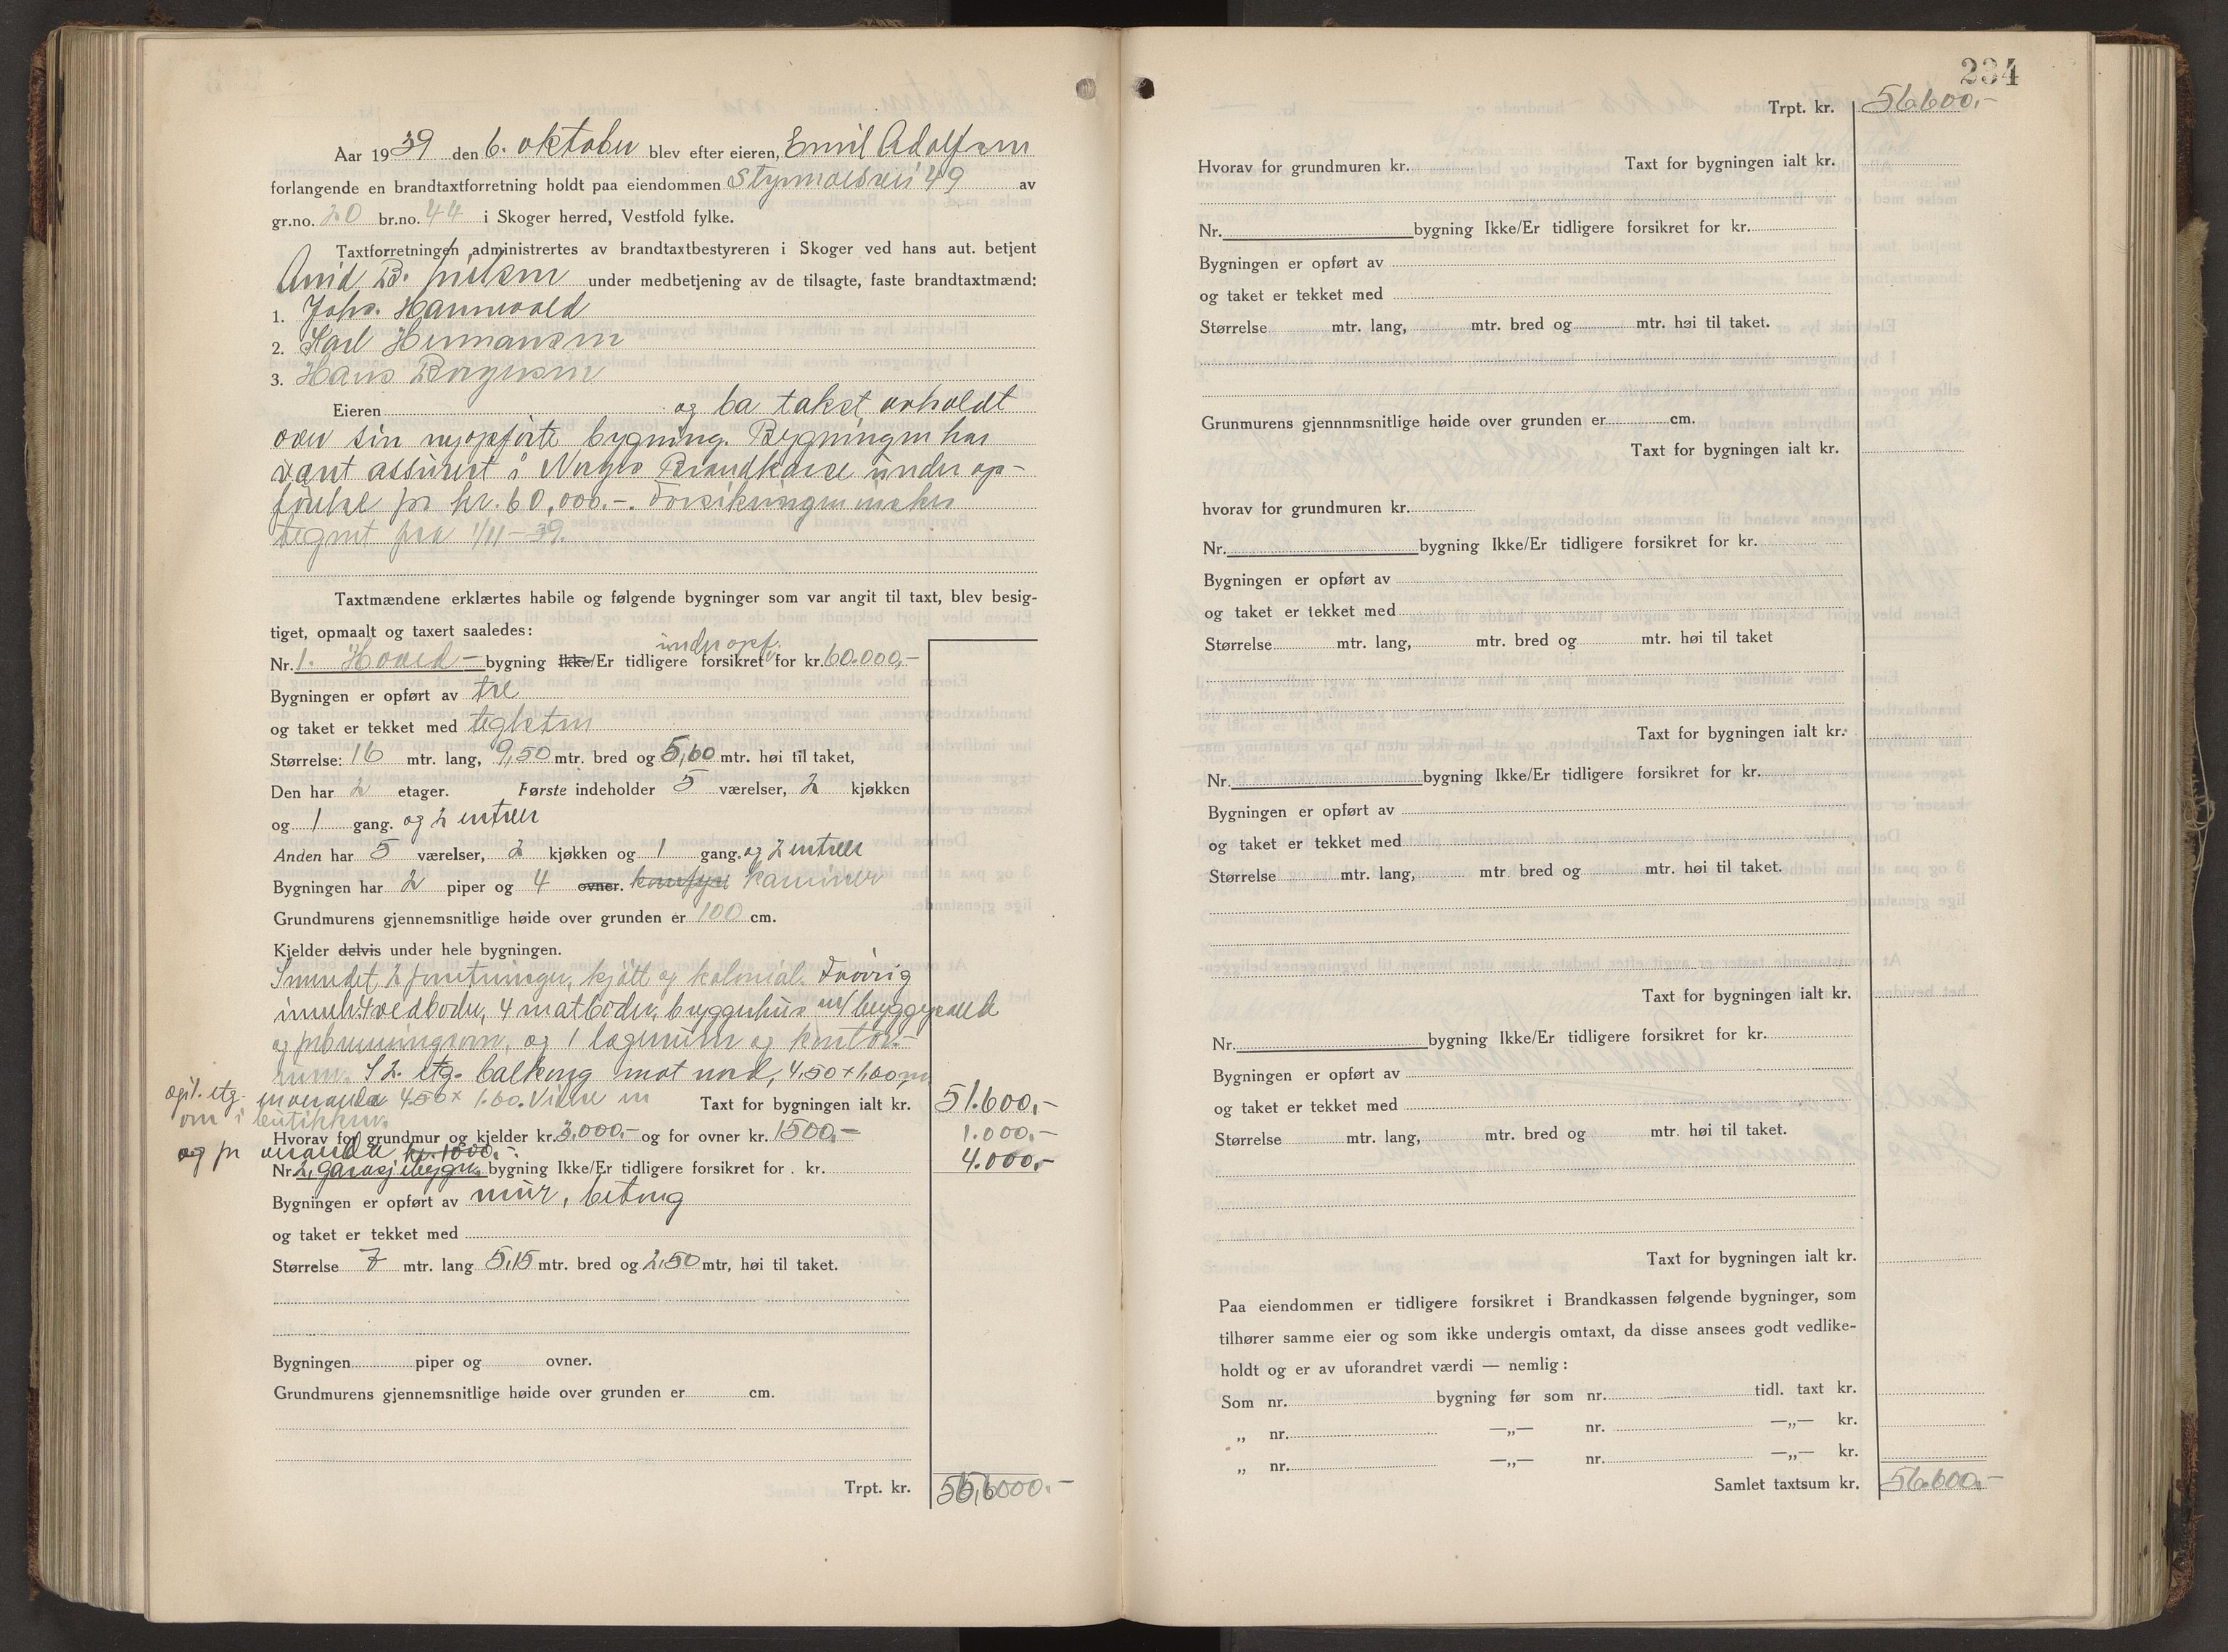 Aar 1939 den 6. oktober blev efter eieren, Emil Adolfsen
forlangende en brandtaxtforretning holdt paa eiendommen Styrmoesvei 49 av
gr.no. 20 br.no. 44 i Skoger herred, Vestfold fylke.
Taxtforretningen administrertes av brandtaxtbestyreren i Skoger ved hans aut. betjent
Arvid B. under medbetjening av de tilsagte, faste brandtaxtmænd:
1. Johs. Hannevold
2. Karl Hermansen
3. Hans Børgersen
Eieren og ba takst avholdt
over sin nyopførte bygning. Bygningen har
vært assurert i Norges Brandkasse under op-
førelse for kr. 60.000.-. Forsikringen ønskes
tegnet fra 1/11-39.
Taxtmændene erklærtes habile og følgende bygninger som var angit til taxt, blev besig-
tiget, opmaalt og taxert saaledes:
under opf.
Nr. 1. Hoved- bygning Ikke/Er tidligere forsikret for kr. 60.000,-
Bygningen er opført av tre
og taket er tekket med teglsten
Størrelse: 16 mtr. lang, 9,50 mtr. bred og 5,60 mtr. høi til taket,
Den har 2 etager. Første indeholder 5 værelser, 2 kjøkken
og 1 gang. og 2 entreer
Anden har 5 værelser, 2 kjøkken og 1 gang. og 2 entreer
Bygningen har 2 piper og 4 ovner. komfyr kaminer
Grundmurens gjennemsnitlige høide over grunden er 100 cm.
Kjelder delvis under hele bygningen.
I 2 forretninger, kjøtt og kolonial. Forøvrig
inneh. 4 vedboder, 4 matboder, bryggerhus m/ bryggepanne
og og 1 lagerrum og kontor-
rum. I 2. etg. balkong mot nord, 4.50 x 1,60 m
og i 1. etg. en veranda 4.50 x 1.60. Videre en Taxt for bygningen ialt kr. 51.600,-
ovn i butikken.
Hvorav for grundmur og kjelder kr. 3.000,- og for ovner kr. 1500,- 1.000,-
og for veranda kr. 1000.-. 4.000,-
Nr. 2, garasjebygn. bygning Ikke/Er tidligere forsikret for . kr.
Bygningen er opført av mur, betong
og taket er tekket med
Størrelse 7 mtr. lang 5,15 mtr. bred og 2,50 mtr, høi til taket.
Bygningen piper og ovner.
Grundmurens gjennemsnitlige høide over grunden er cm.
Trpt. kr.
234
Trpt. kr. 56.600,-
Hvorav for grundmuren kr. Taxt for bygningen ialt kr.
Nr. bygning Ikke/Er tidligere forsikret for kr.
Bygningen er opført av
og taket er tekket med
Størrelse mtr. lang, mtr. bred og mtr. høi til taket.
Grunmurens gjennnmsnitlige høide over grunden er cm.
Taxt for bygningen ialt kr.
hvorav for grundmuren kr.
Nr. bygning Ikke/Er tidligere forsikret for kr.
Bygningen er opført av
og taket er tekket med
Størrelse mtr. lang, mtr. bred og mtr. høi til taket
Taxt for bygningen ialt kr.
Nr. bygning Ikke/Er tidligere forsikret for kr.
Bygningen er opført av
og taket er tekket med
Størrelse mtr. lang, mtr bred og mtr. høi til taket.
Taxt for bygningen ialt kr.
Nr. bygning Ikke/Er tidligere forsikret for kr.
Bygningen er opført av
og taket er tekket med
Størrelse mtr. lang, mtr. bred og mtr. høi til taket.
Taxt for bygningen ialt kr.
Paa eiendommen er tidligere forsikret i Brandkassen følgende bygninger, som
tilhører samme eier og som ikke undergis omtaxt, da disse ansees godt vedlike-
holdt og er av uforandret værdi — nemlig:
Som nr. bygning før som nr. tidl. taxt kr.
„ nr. —„— nr. —„— kr.
„ nr. —„— nr. —„— kr.
Samlet taxtsum kr. 56.600,-